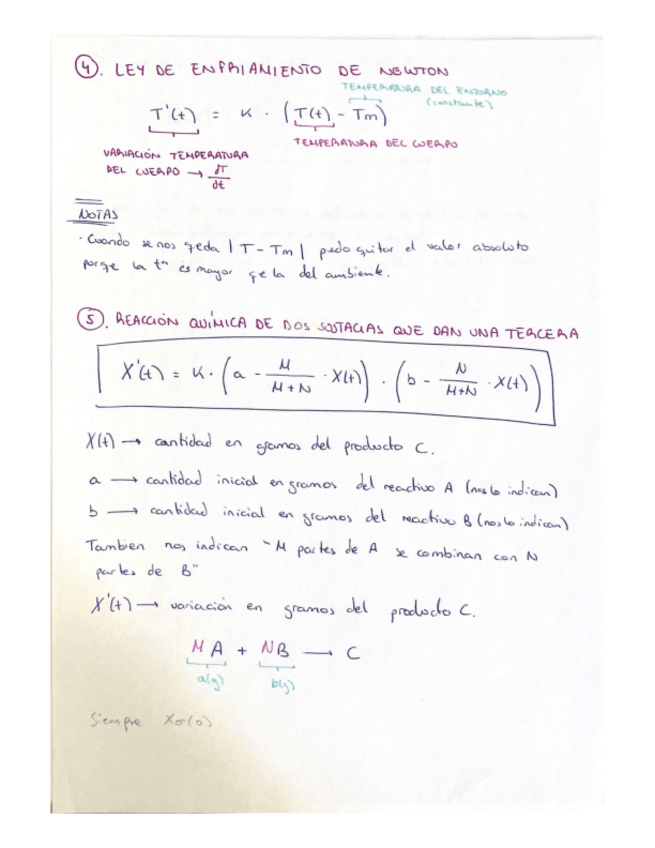 4. LEY DE ENFRIAMIENTO DE NEWTON
TEMPERATURA DEL ENTORNO
(constante)
T'(t) = K · (T(t) - Tm)
TEMPERATURA DEL CUERPO
VARIACIÓN TEMPERATURA
DEL CUERPO → dT/dt
NOTAS
· Cuando se nos qeda |T - Tm| puedo quitar el valor absoluto
porqe la tª es mayor qe la del ambiente.
5. REACCIÓN QUÍMICA DE DOS SUSTACIAS QUE DAN UNA TERCERA
X'(t) = K · (a - M/(M+N) · X(t)) · (b - N/(M+N) · X(t))
X(t) → cantidad en gramos del producto C.
a → cantidad inicial en gramos del reactivo A (nos lo indican)
b → cantidad inicial en gramos del reactivo B (nos lo indican)
Tambien nos indican "M partes de A se combinan con N
partes de B"
X'(t) → variación en gramos del producto C.
MA + NB → C
a(g) b(g)
Siempre